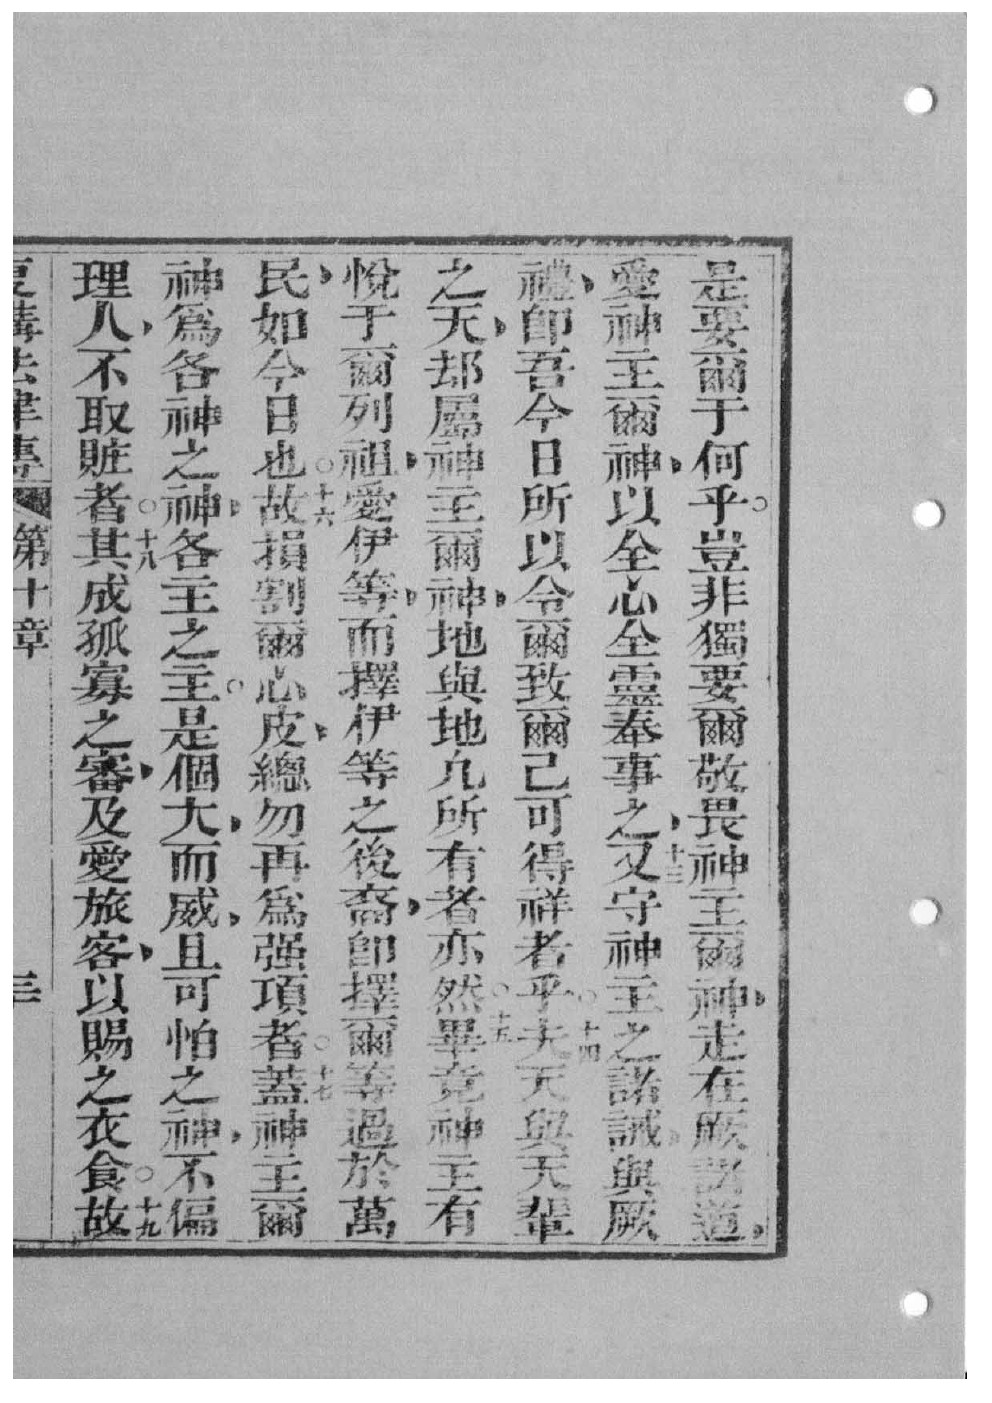 是要爾于何乎。豈非獨要爾敬畏神主爾神、走在厥諸道、
愛神主爾神、以全心全靈奉事之、十三又守神主之諸誡、與厥
禮、即吾今日所以令爾致爾己可得祥者乎。十四夫天與天輩
之天、却屬神主爾神、地與地凡所有者亦然。十五畢竟神主有
悅于爾列祖、愛伊等、而擇伊等之後裔、即擇爾等過於萬
民、如今日也。十六故損割爾心皮、總勿再爲强項者。十七蓋神主爾
神爲各神之神、各主之主。是個大、而威、且可怕之神、不偏
理人、不取賍者。十八其成孤寡之審、及愛旅客、以賜之衣食。十九故
復講法律傳 第十章 三